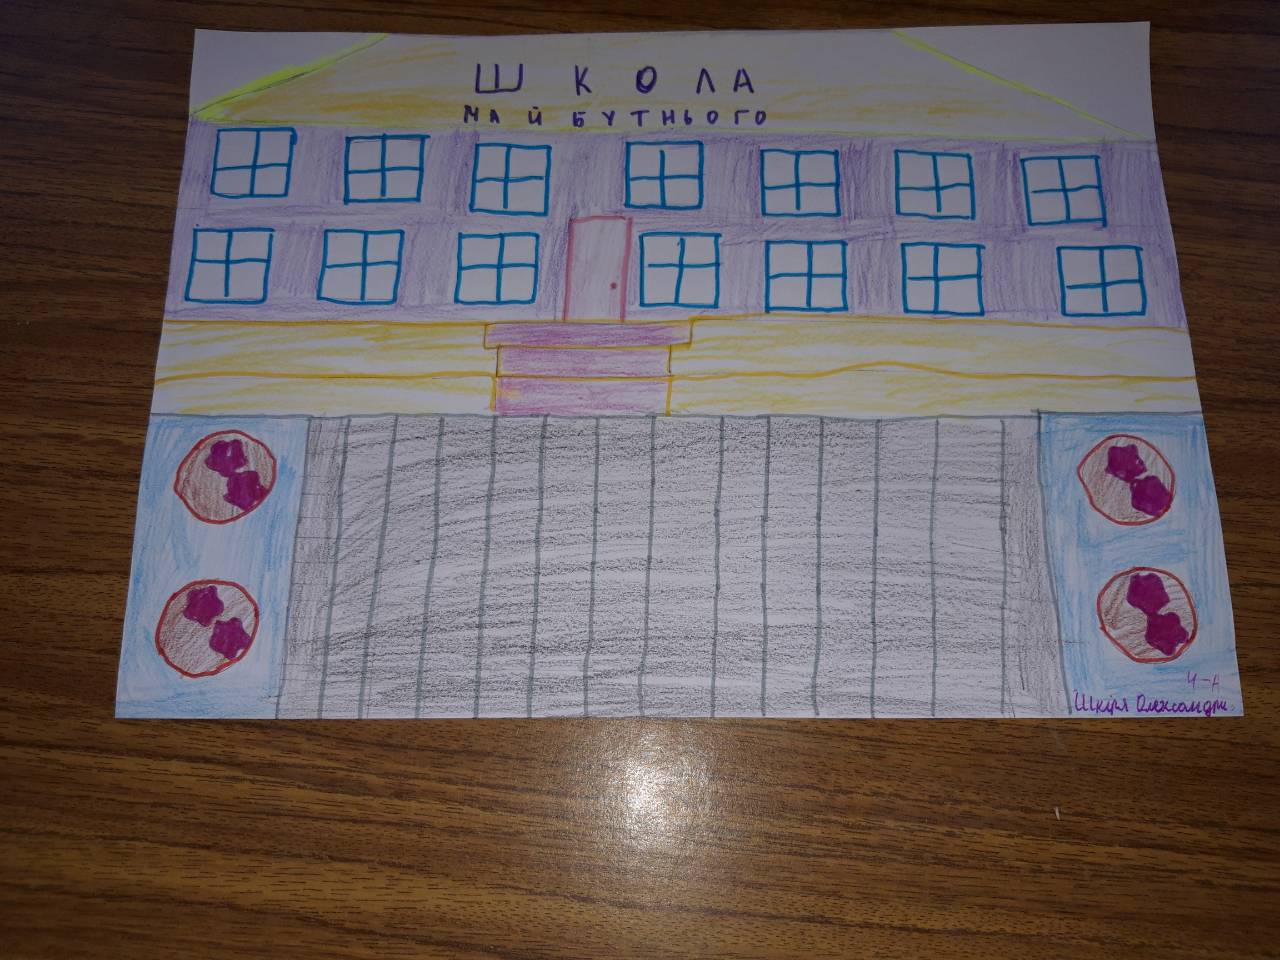 ШКОЛА
МАЙБУТНЬОГО
4-А
Шкіря Олександра